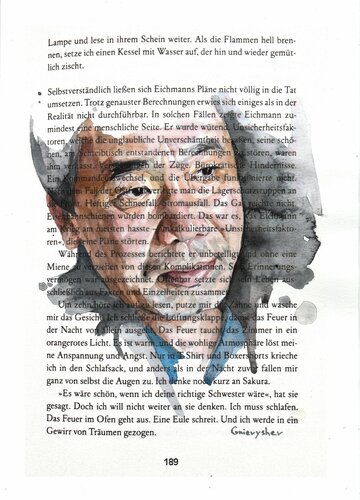 Lampe und lese in ihrem Schein weiter. Als die Flammen hell bren-
nen, setze ich einen Kessel mit Wasser auf, der hin und wieder gemüt-
lich zischt.
Selbstverständlich ließen sich Eichmanns Pläne nicht völlig in die Tat
umsetzen. Trotz genauster Berechnungen erwies sich einiges als in der
Realität nicht durchführbar. In solchen Fällen zeigte Eichmann zu-
mindest eine menschliche Seite. Er wurde wütend. Unsicherheitsfakto-
ren, die die unglaubliche Unverschämtheit besaßen, seine schö-
nen, am Schreibtisch entstandenen Berechnungen
der Züge. Bürokratische Hindernisse.
die Übergabe
Fall der werde man die Lagerschutztruppen
Heftiger Schneefall. Stromausfall. Das Gas
wurden bombardiert. Das war es, was Eich-
mann am meisten hasste – unkalkulierbare Unsicherheitsfakto-
ren, die seine Pläne störten.
Während des Prozesses berichtete er unbeteiligt und ohne eine
Miene zu von den Komplikationen. Erinnerungs-
Leben aus-
schließlich aus Fakten und Einzelheiten zusammen.
Um zehn höre ich auf zu lesen, putze mir die Zähne und wasche
mir das Gesicht. Ich schließe die Lüftungsklappe, damit das Feuer in
der Nacht von ausgeht. Das Feuer taucht das Zimmer in ein
orangerotes Licht. Die Wärme und die wohlige Atmosphäre löst mei-
ne Anspannung und Angst. Nur in T-Shirt und Boxershorts krieche
ich in den Schlafsack, und anders als in der Nacht zuvor fallen mir
ganz von selbst die Augen zu. Ich denke noch kurz an Sakura.
»Es wäre schön, wenn ich deine richtige Schwester wäre«, hat sie
gesagt. Doch ich will nicht weiter an sie denken. Ich muss schlafen.
Das Feuer im Ofen geht aus. Eine Eule schreit. Und ich werde in ein
Gewirr von Träumen gezogen.
Gnievyshev
189